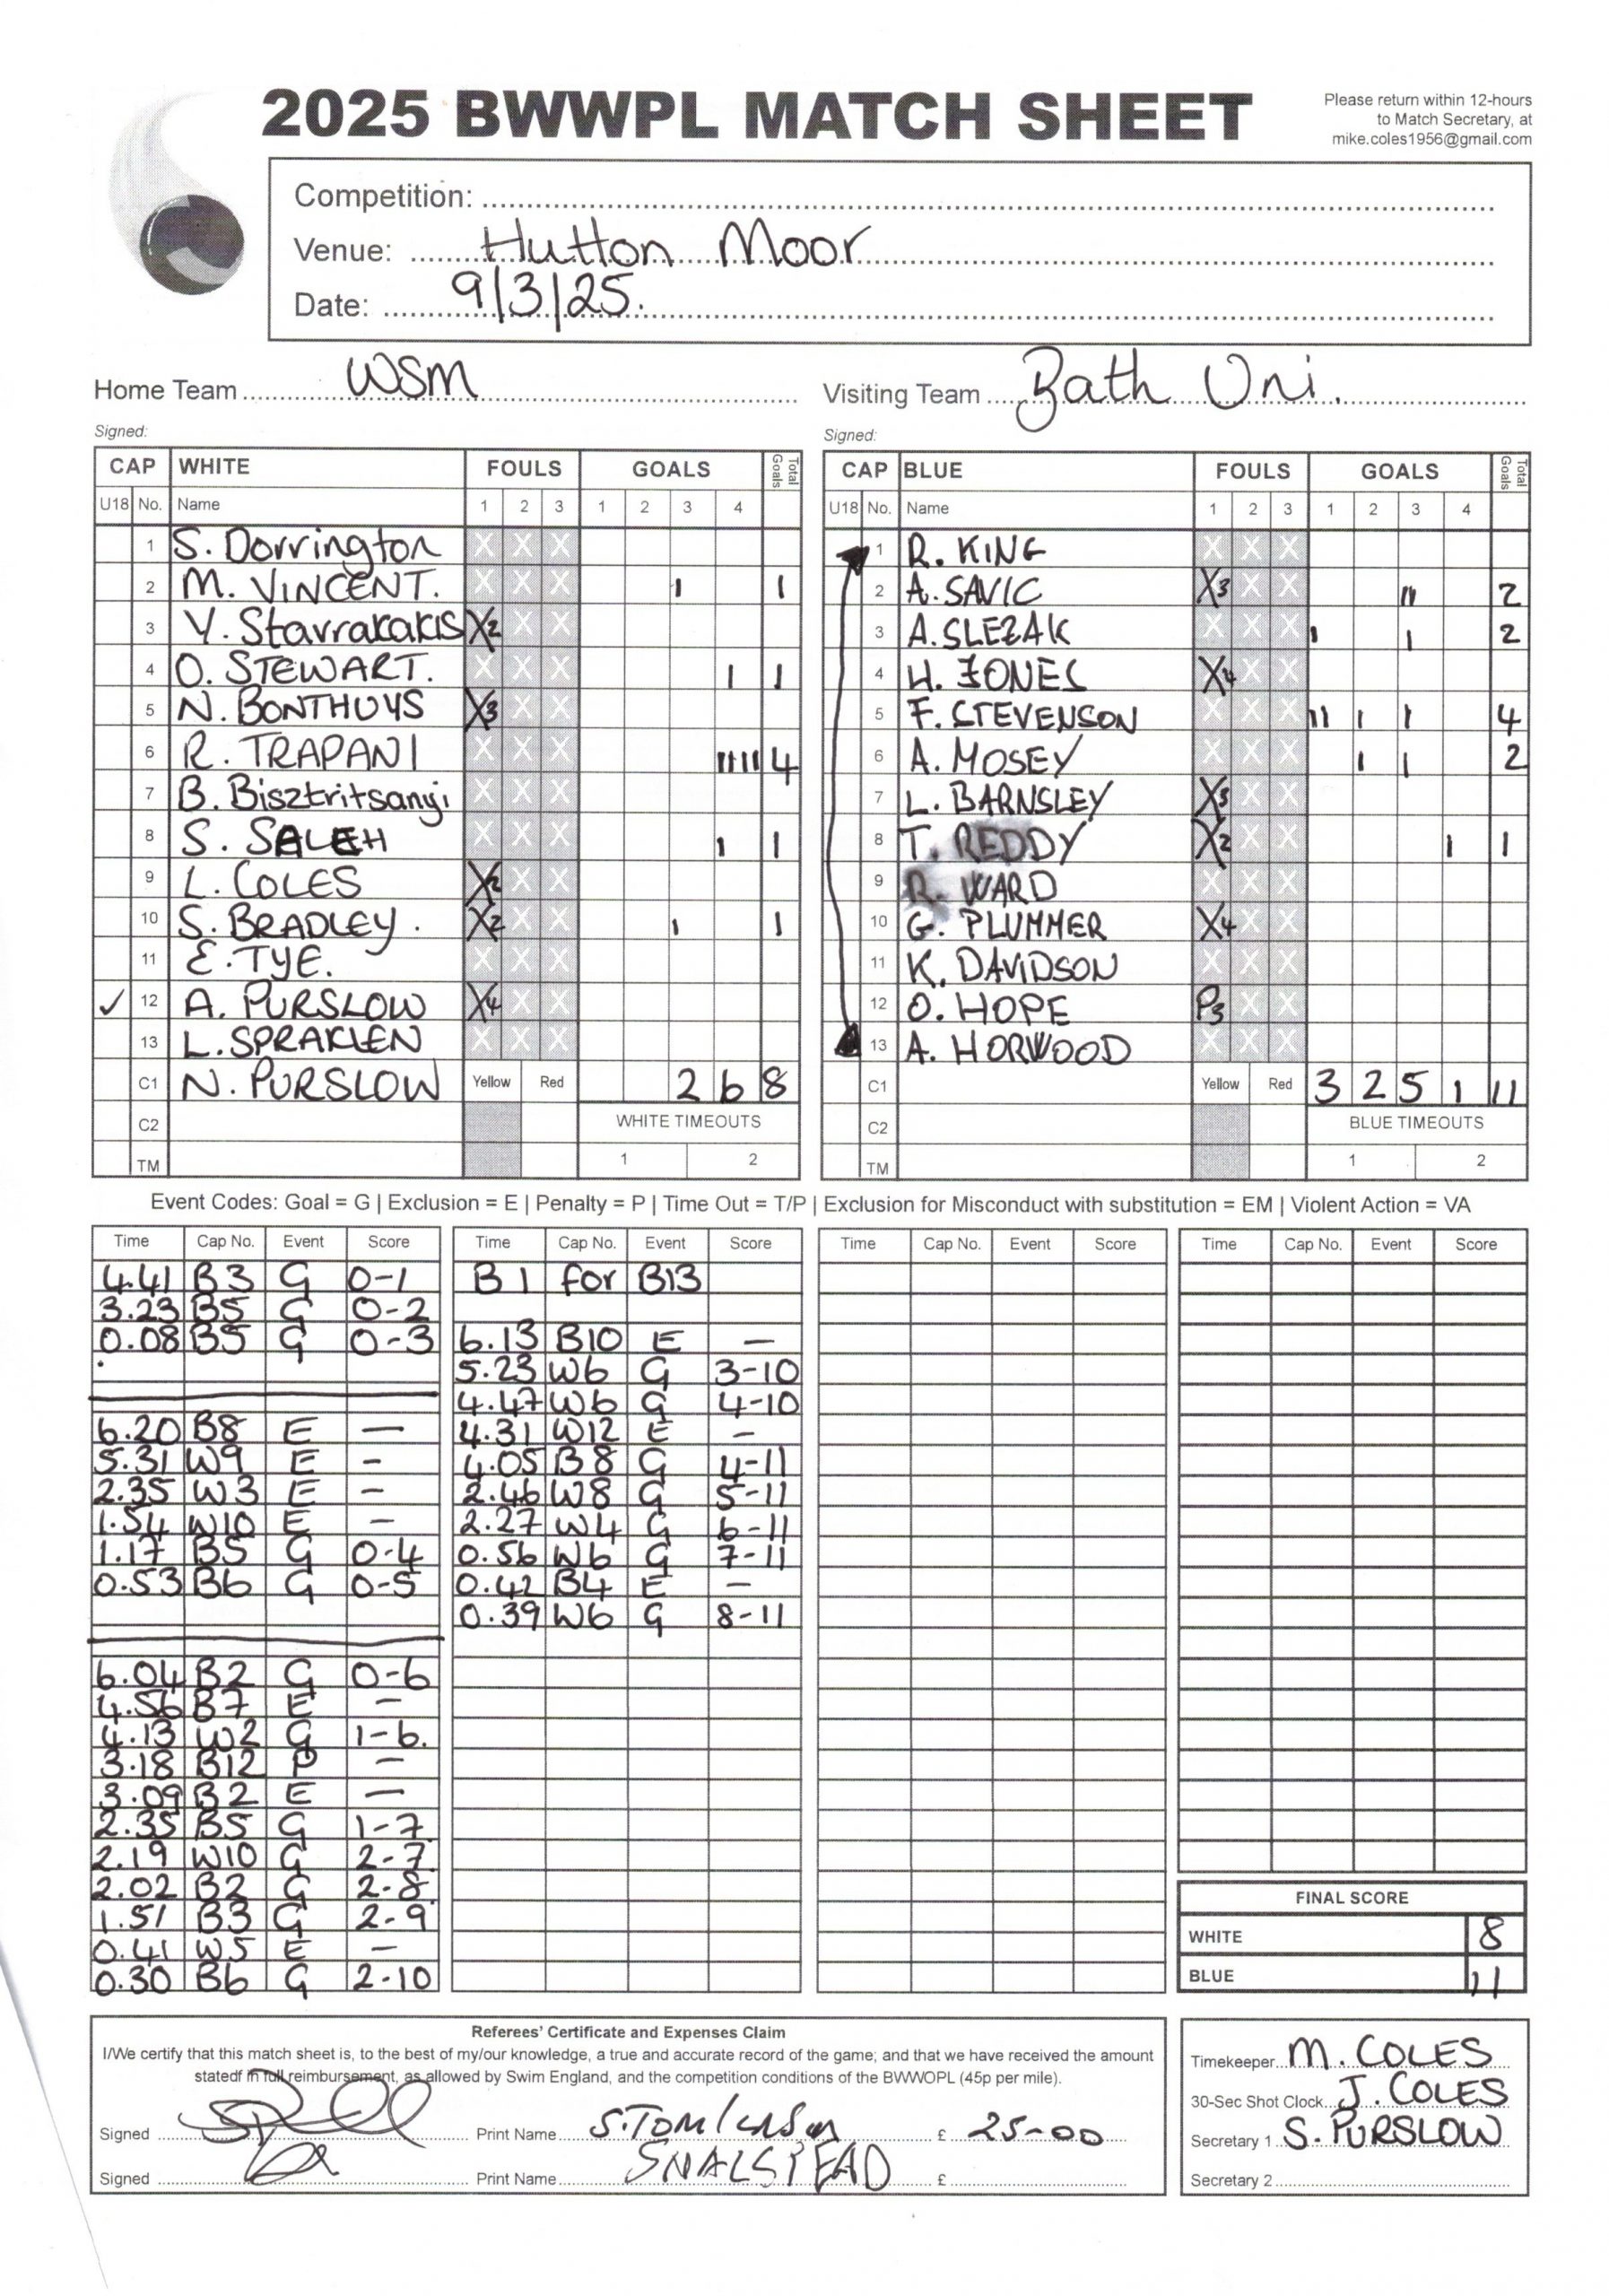 2025 BWWPL MATCH SHEET
Please return within 12-hours
to Match Secretary, at
mike.coles1956@gmail.com
Competition:
Venue: Hutton Moor
Date: 9/3/25.
Home Team WSM Visiting Team Bath Uni.
Signed: Signed:
CAP WHITE FOULS GOALS Total Goals
U18 No. Name 1 2 3 1 2 3 4
1 S. Dorrington X X X
2 M. VINCENT. X X X 1 1
3 Y. Stavrakakis X2 X X
4 O. STEWART. X X X 1 1
5 N. BONTHUYS X3 X X
6 R. TRAPANI X X X 4
7 B. Bisztritsanyi X X X
8 S. SALEH X X X 1 1
9 L. COLES X2 X X
10 S. BRADLEY. X2 X X 1 1
11 E. TYE. X X X
✓ 12 A. PURSLOW X4 X X
13 L. SPRAKLEN X X X
C1 N. PURSLOW Yellow Red 2 6 8
C2 WHITE TIMEOUTS
TM 1 2
CAP BLUE FOULS GOALS Total Goals
U18 No. Name 1 2 3 1 2 3 4
1 R. KING X X X
2 A. SAVIC X3 X X 11 2
3 A. SLEZAK X X X 1 1 2
4 H. JONES X4 X X
5 F. STEVENSON X X X 11 1 1 4
6 A. MOSEY X X X 1 1 2
7 L. BARNSLEY X3 X X
8 T. REDDY X2 X X 1 1
9 R. WARD X X X
10 G. PLUMMER X4 X X
11 K. DAVIDSON X X X
12 O. HOPE P3 X X
13 A. HORWOOD X X X
C1 Yellow Red 3 2 5 1 11
C2 BLUE TIMEOUTS
TM 1 2
Event Codes: Goal = G | Exclusion = E | Penalty = P | Time Out = T/P | Exclusion for Misconduct with substitution = EM | Violent Action = VA
Time Cap No. Event Score
4.41 B3 G 0-1
3.23 B5 G 0-2
0.08 B5 G 0-3
6.20 B8 E —
5.31 W9 E -
2.35 W3 E -
1.54 W10 E -
1.17 B5 G 0-4
0.53 B6 G 0-5
6.04 B2 G 0-6
4.56 B7 E —
4.13 W2 G 1-6.
3.18 B12 P —
3.09 B2 E —
2.35 B5 G 1-7
2.19 W10 G 2-7
2.02 B2 G 2-8
1.51 B3 G 2-9
0.41 W5 E —
0.30 B6 G 2-10
Time Cap No. Event Score
B1 for B13
6.13 B10 E —
5.23 W6 G 3-10
4.47 W6 G 4-10
4.31 W12 E -
4.05 B8 G 4-11
2.46 W8 G 5-11
2.27 W4 G 6-11
0.56 W6 G 7-11
0.42 B4 E —
0.39 W6 G 8-11
Time Cap No. Event Score
Time Cap No. Event Score
FINAL SCORE
WHITE 8
BLUE 11
Referees' Certificate and Expenses Claim
I/We certify that this match sheet is, to the best of my/our knowledge, a true and accurate record of the game; and that we have received the amount
statedf in full reimbursement, as allowed by Swim England, and the competition conditions of the BWWOPL (45p per mile).
Signed Print Name S. Tomlinson £ 25-00
Signed Print Name £
Timekeeper M. COLES
30-Sec Shot Clock J. COLES
Secretary 1 S. PURSLOW
Secretary 2